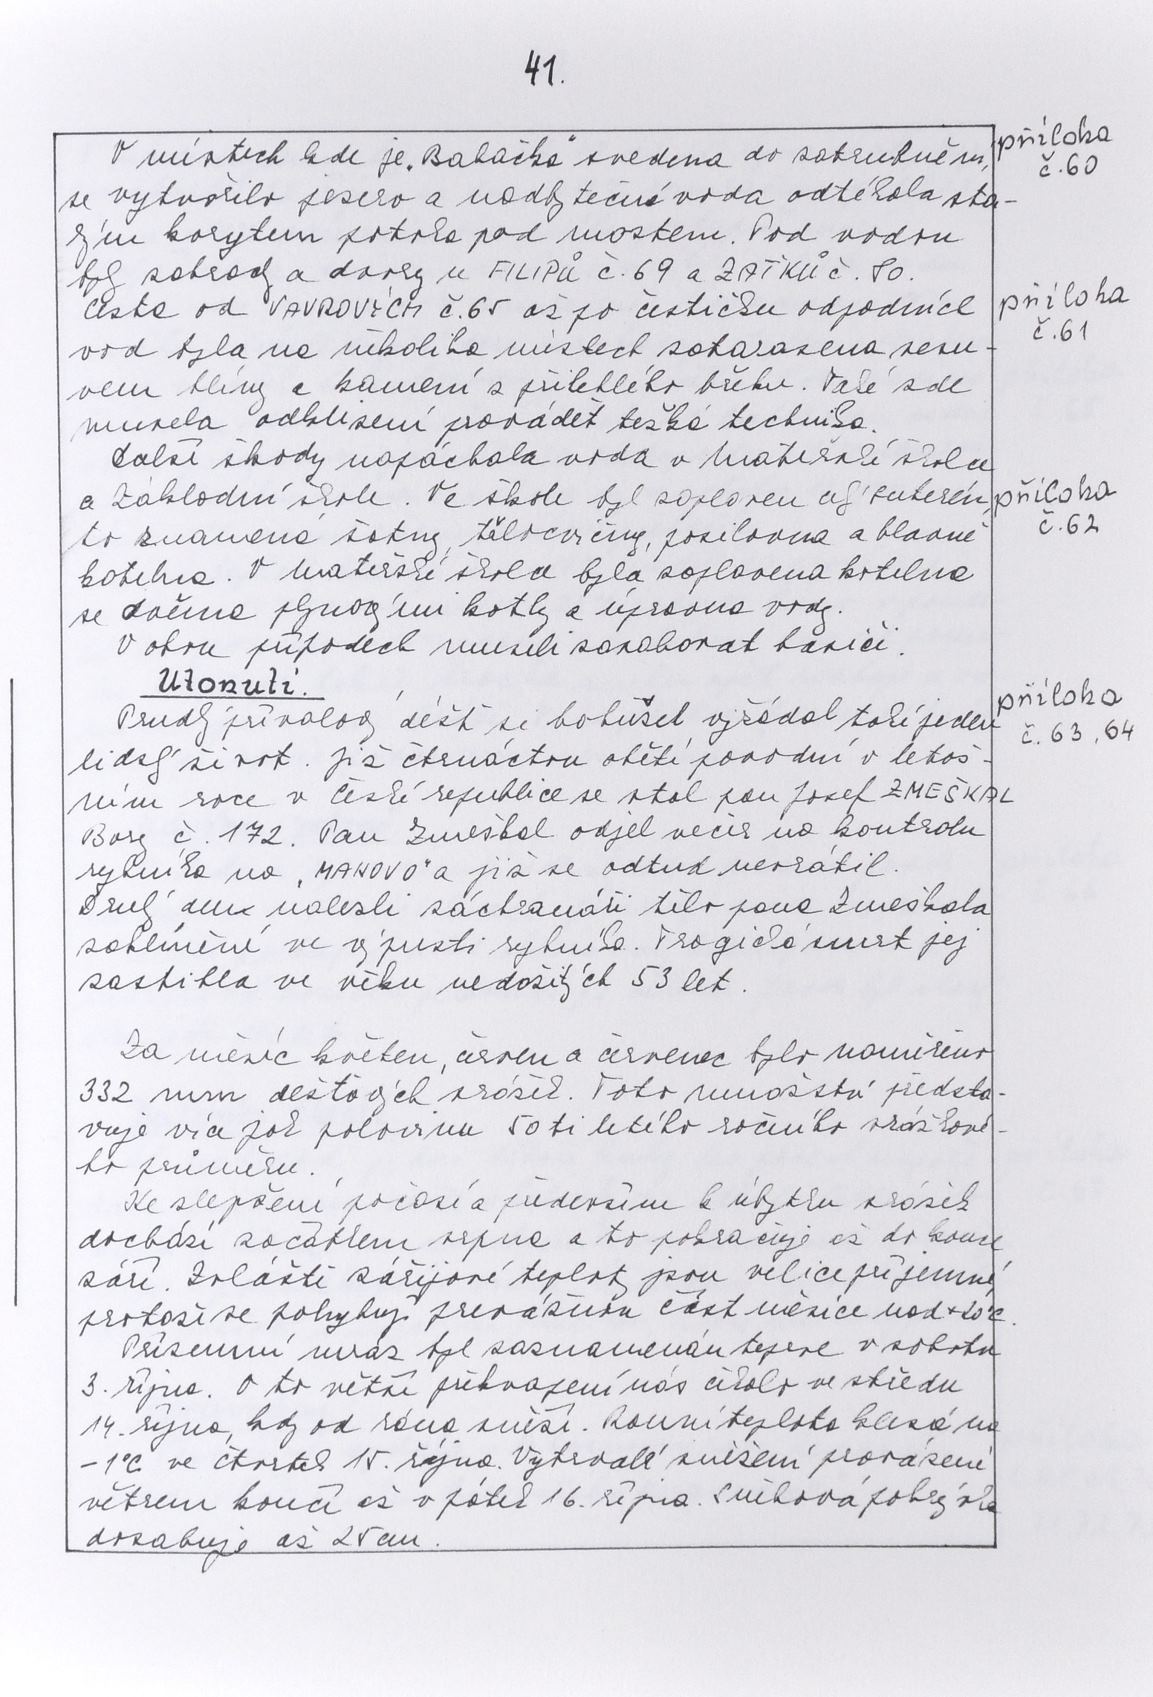 41.
V místech kde je „Babačka" svedena do zatrubnění, příloha č.60
se vytvořilo jezero a nadbytečná voda odtékala sta-
rým korytem potoka pod mostem. Pod vodou
byly zahrady a dvory u FILIPŮ č.69 a ZAŤKŮ č. 80.
Cesta od VAVROVÝCH č.65 až po čističku odpadních příloha č.61
vod byla na několika místech zatarasena sesu-
vem hlíny a kamení z přilehlého břehu. Také zde
musela odklizení provádět težká technika.
Další škody napáchala voda v Mateřské škole
a Základní škole. Ve škole byl zaplaven celý suterén, příloha č.62
to znamená šatny, tělocvičny, posilovna a hlavně
kotelna. V Mateřské škole byla zaplavena kotelna
se dvěma plynovými kotly a úpravna vody.
V obou případech museli zasahovat hasiči.
Utonutí.
Prudký přívalový déšť si bohužel vyžádal také jeden příloha č. 63, 64
lidský život. Již čtrnáctou obětí povodní v letoš-
ním roce v České republice se stal pan Josef ZMEŠKAL
Bory č. 172. Pan Zmeškal odjel večer na kontrolu
rybníka na „MAHOVO" a již se odtud nevrátil.
Druhý den nalezli záchranáři tělo pana Zmeškala
zaklíněné ve výpusti rybníka. Tragická smrt jej
zastihla ve věku nedožitých 53 let.
Za měsíc květen, červen a červenec bylo naměřeno
332 mm dešťových srážek. Toto množství předsta-
vuje více jak polovinu 50ti letého ročního srážkové-
ho průměru.
Ke zlepšení počasí a především k úbytku srážek
dochází začátkem srpna a to pokračuje až do konce
září. Zvláště zářijové teploty jsou velice příjemné,
protože se pohybují převážnou část měsíce nad +20°C.
Přízemní mráz byl zaznamenán teprve v sobotu
3. října. O to větší překvapení nás čekalo ve středu
14. října, kdy od rána sněží. Ranní teplota klesá na
-1°C ve čtvrtek 15. října. Vytrvalé sněžení provázené
větrem končí až v pátek 16. října. Sněhová pokrývka
dosahuje až 25 cm.